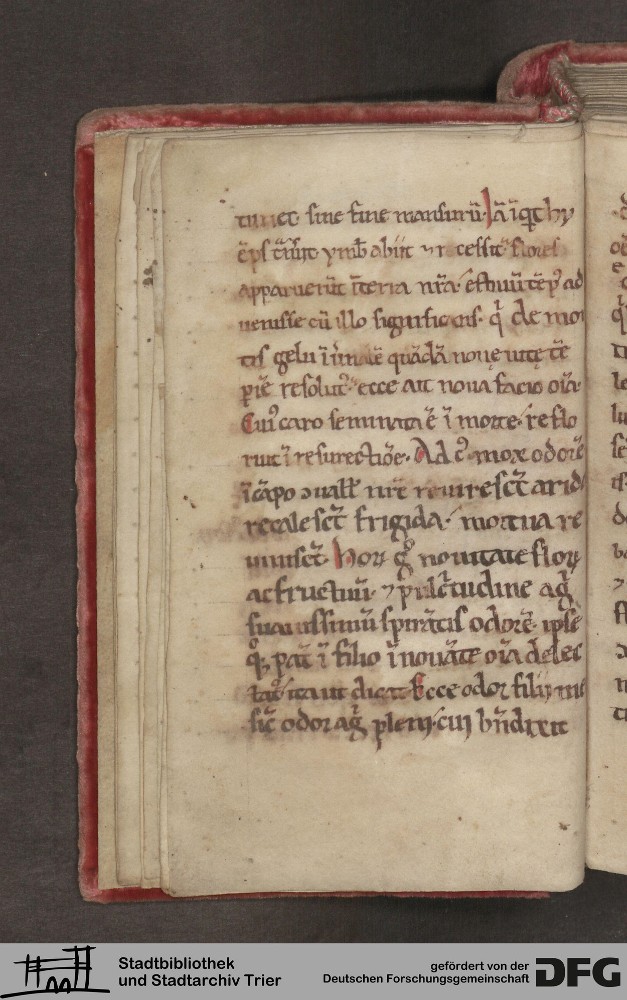 sine fine mansurū. Iā iqͥt hy
ēps t̄nsiit ymb̄ abiit ⁊ recessit. flores
apparuerūt īterra nr̄a. estiuū tēpꝰ ad
uenisse cū illo significans. qͥ de mor
tis gelu ī u̇nalē quādā nouę uitę tē
ꝑiē resolutꝰ. ecce ait noua facio oīa.
Cuiꝰ caro seminata ē ī morte. reflo
ruit ī resurectiōe. Ad cꝰ mox odorē
ī cāpo ꝯuall̄ nr̄e reuiresct̄ arida
recalesct̄ frigida. mortua re
uiuisct̄. Horꝝ gͦ nouitate florꝝ
ac fructuū. ⁊ pulc̄tudine agͥ
suauissimū spirātis odorē. ipse
qͦꝗ. pat̄ ī filio īnouāte oīa delec
tatͬ. ita ut dicat Ecce odor filij mei
sic̄ odor agͥ pleni. cui bn̄dixit
Stadtbibliothek
und Stadtarchiv Trier
gefördert von der
Deutschen Forschungsgemeinschaft
DFG